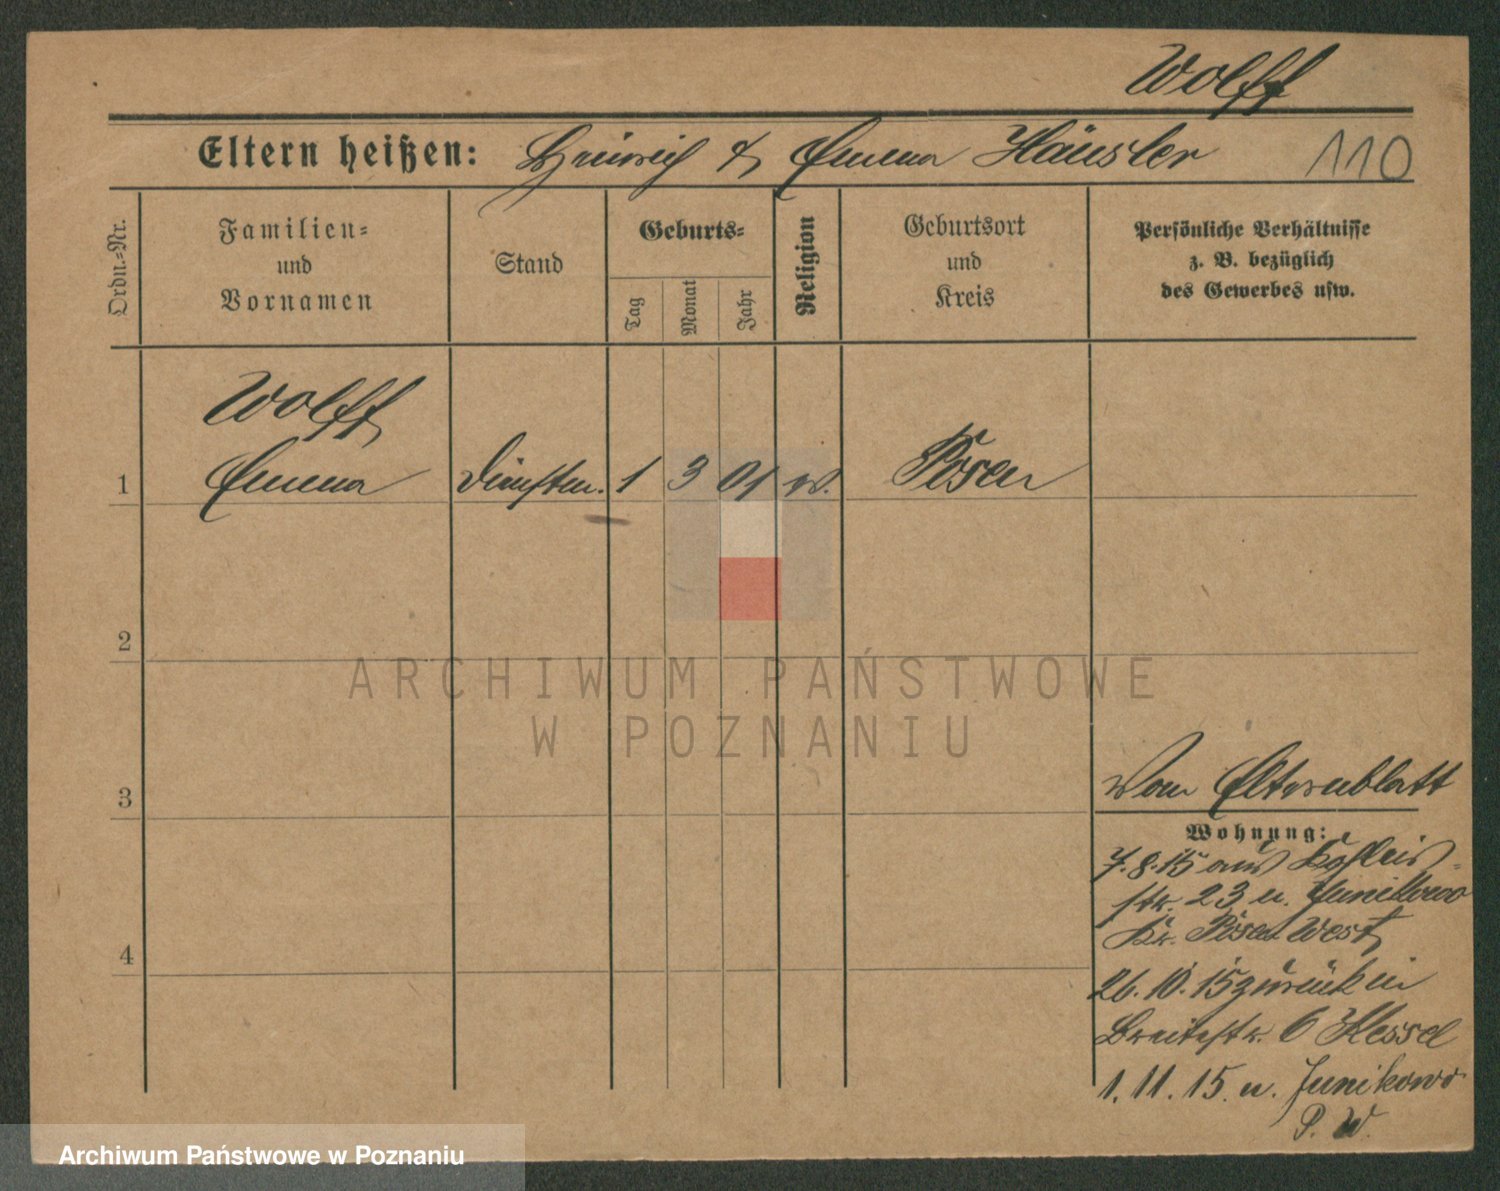 Wolff
Eltern heißen: Heinrich & Emma Häusler 110
Ordn.-Nr.
Familien-
und
Vornamen
Stand
Geburts-
Tag
Monat
Jahr
Religion
Geburtsort
und
Kreis
Persönliche Verhältnisse
z. B. bezüglich
des Gewerbes usw.
Wolff
1 Emma 1 3 01 Posen
2
ARCHIWUM PAŃSTWOWE
W POZNANIU
3
Vom Elternblatt
Wohnung:
7.8.15 aus
str. 23 n. Junikowo
Kr. Posen West
4
26.10.15 zurück in
Breitestr. 6 Kessel
1.11.15. n. Junikowo
P. W.
Archiwum Państwowe w Poznaniu